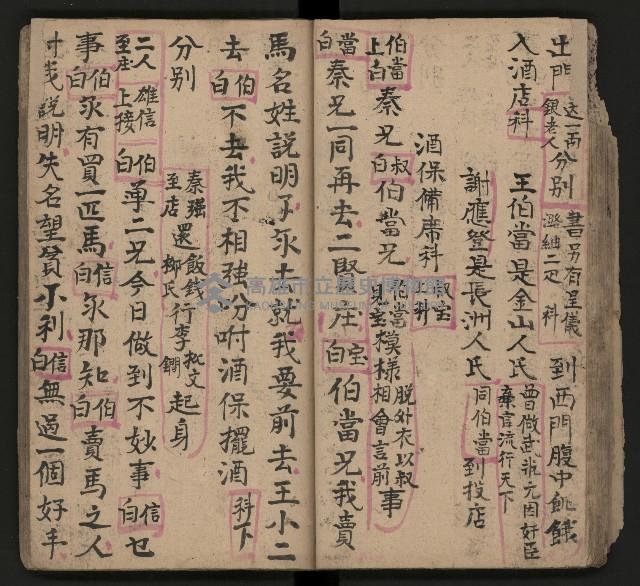 出門 送一両銀老人分別 書另有程儀潞紬二疋 科 到西門腹中飢餓
入酒店科 王伯當是金山人氏 曾做武狀元因奸臣棄官流行天下
謝應登是長洲人氏 同伯當到投店
酒保備席科
伯當上白 秦兄 叔白 伯當兄 伯當 模樣 脱外衣以叙相會言前事
當白 秦兄一同再去二賢庄 宝白 伯當兄我賣
馬名姓説明了 去就我要前去王小二
去 伯白 不去我不相強分咐酒保擺酒 科下
分别 秦瓊還飯錢行李批文至店柳氏 鐧 起身
二人至庄 雄信上接 伯白 單二兄今日做到不妙事 信白 乜
事 伯白 永有買一匹馬 信白 永那知 伯白 賣馬之人
説明失名望實不利 信白 無過一個好手
高雄市立歷史博物館